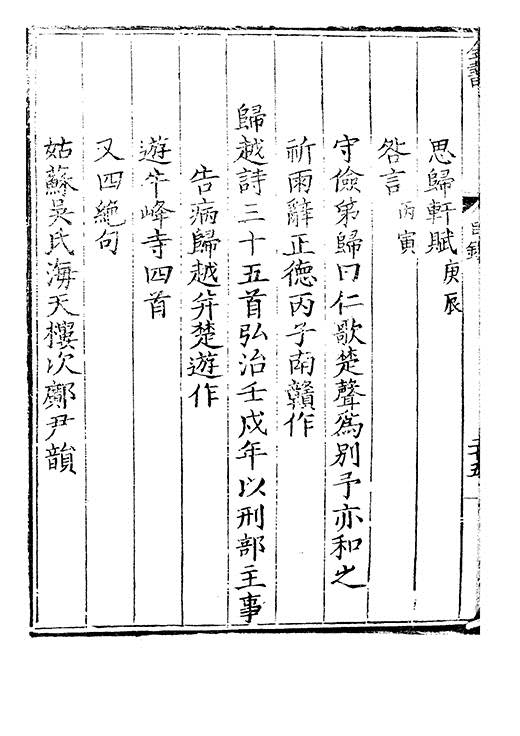 思歸軒賦庚辰
咎言丙寅
守儉弟歸曰仁歌楚聲為別予亦和之
祈雨辭正德丙子南贛作
歸越詩三十五首弘治壬戌年以刑部主事
告病歸越并楚遊作
遊牛峰寺四首
又四絕句
姑蘇吳氏海天樓次鄺尹韻